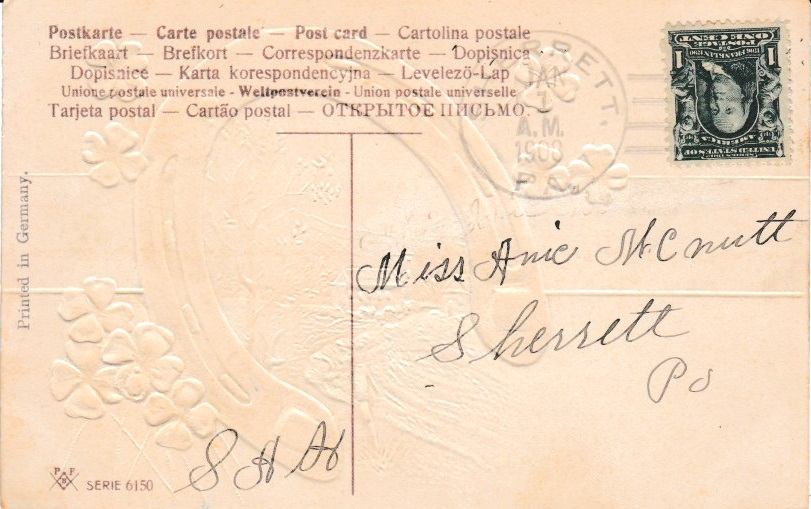 Postkarte — Carte postale — Post card — Cartolina postale
Briefkaart — Brefkort — Correspondenzkarte — Dopisnica
Dopisnice — Karta korespondencyjna — Levelező-Lap
Unione postale universale - Weltpostverein - Union postale universelle
Tarjeta postal — Cartão postal — ОТКРЫТОЕ ПИСЬМО.
RRETT.
JAN
1
A.M.
1908
PA.
POSTAGE
ONE CENT
1 1
FRANKLIN
SERIES 1902
UNITED STATES OF
AMERICA
Printed in Germany.
Miss Anie McNutt
Sherrett
Pa
S H H
P F B
SERIE 6150